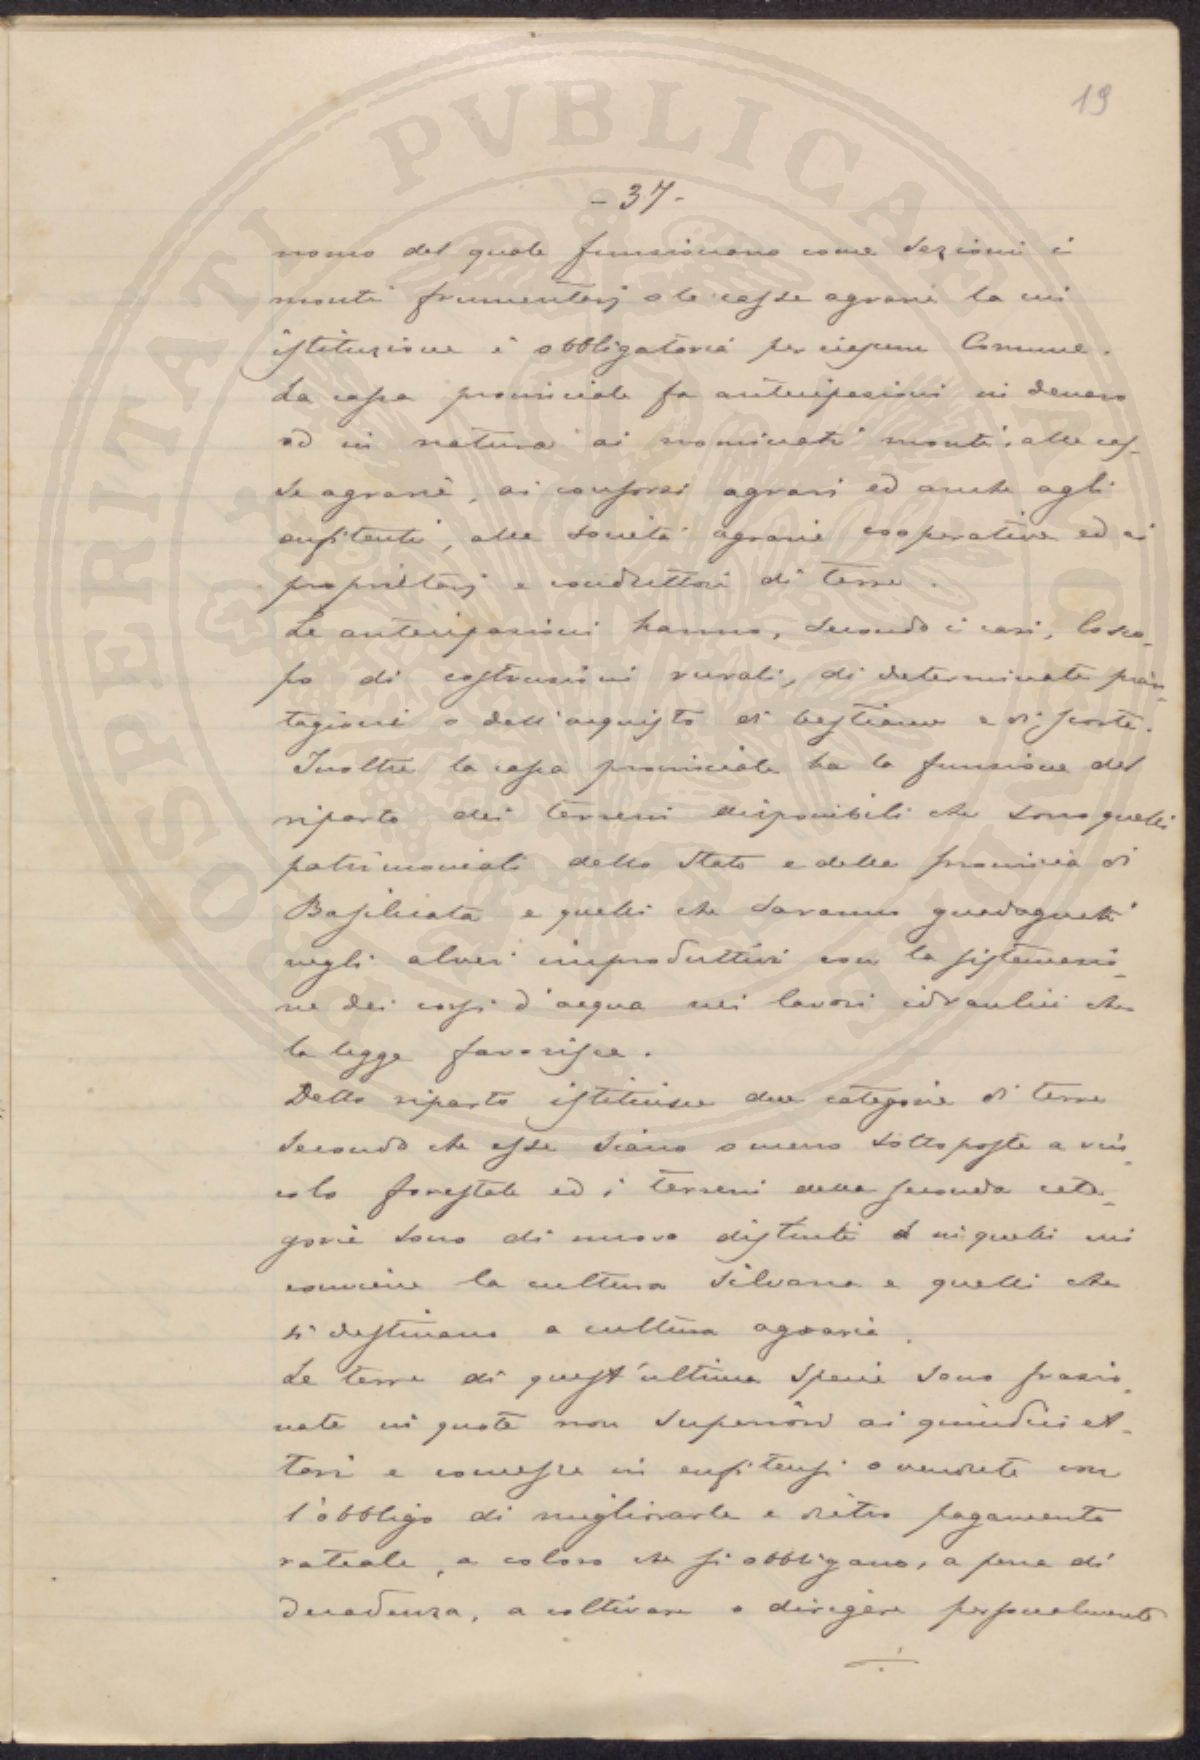 19
- 37 -
nomo del quale funzionano come sezioni i
monti frumentarj o le casse agrarie la cui
istituzione è obbligatoria per ciascun Comune.
La cassa provinciale fa anticipazioni in denaro
ed in natura ai nominati monti, alle cas-
se agrarie, ai consorzi agrari ed anche agli
enfiteuti, alle società agrarie cooperative ed ai
proprietarj e conduttori di terre.
Le anticipazioni hanno, secondo i casi, lo sco-
po di costruzioni rurali, di determinate pian-
tagioni o dell'acquisto di bestiame e di scorte.
Inoltre la cassa provinciale ha la funzione del
riparto dei terreni disponibili che sono quelli
patrimoniali dello Stato e della provincia di
Basilicata e quelli che saranno guadagnati
negli alvei improduttivi con la sistemazio-
ne dei corsi d'acqua nei lavori idraulici che
la legge favorisce.
Detto riparto istituisce due categorie di terre
secondo che esse siano o meno sottoposte a vin-
colo forestale ed i terreni della seconda cate-
goria sono di nuovo distinti in quelli cui
conviene la cultura silvana e quelli che
si destinano a cultura agraria.
Le terre di quest'ultima specie sono frazio-
nate in quote non superiori ai quindici et-
tari e concesse in enfiteusi o vendute con
l'obbligo di migliorarle e dietro pagamento
rateale, a coloro che si obbligano, a pena di
decadenza, a coltivare o dirigere personalmente